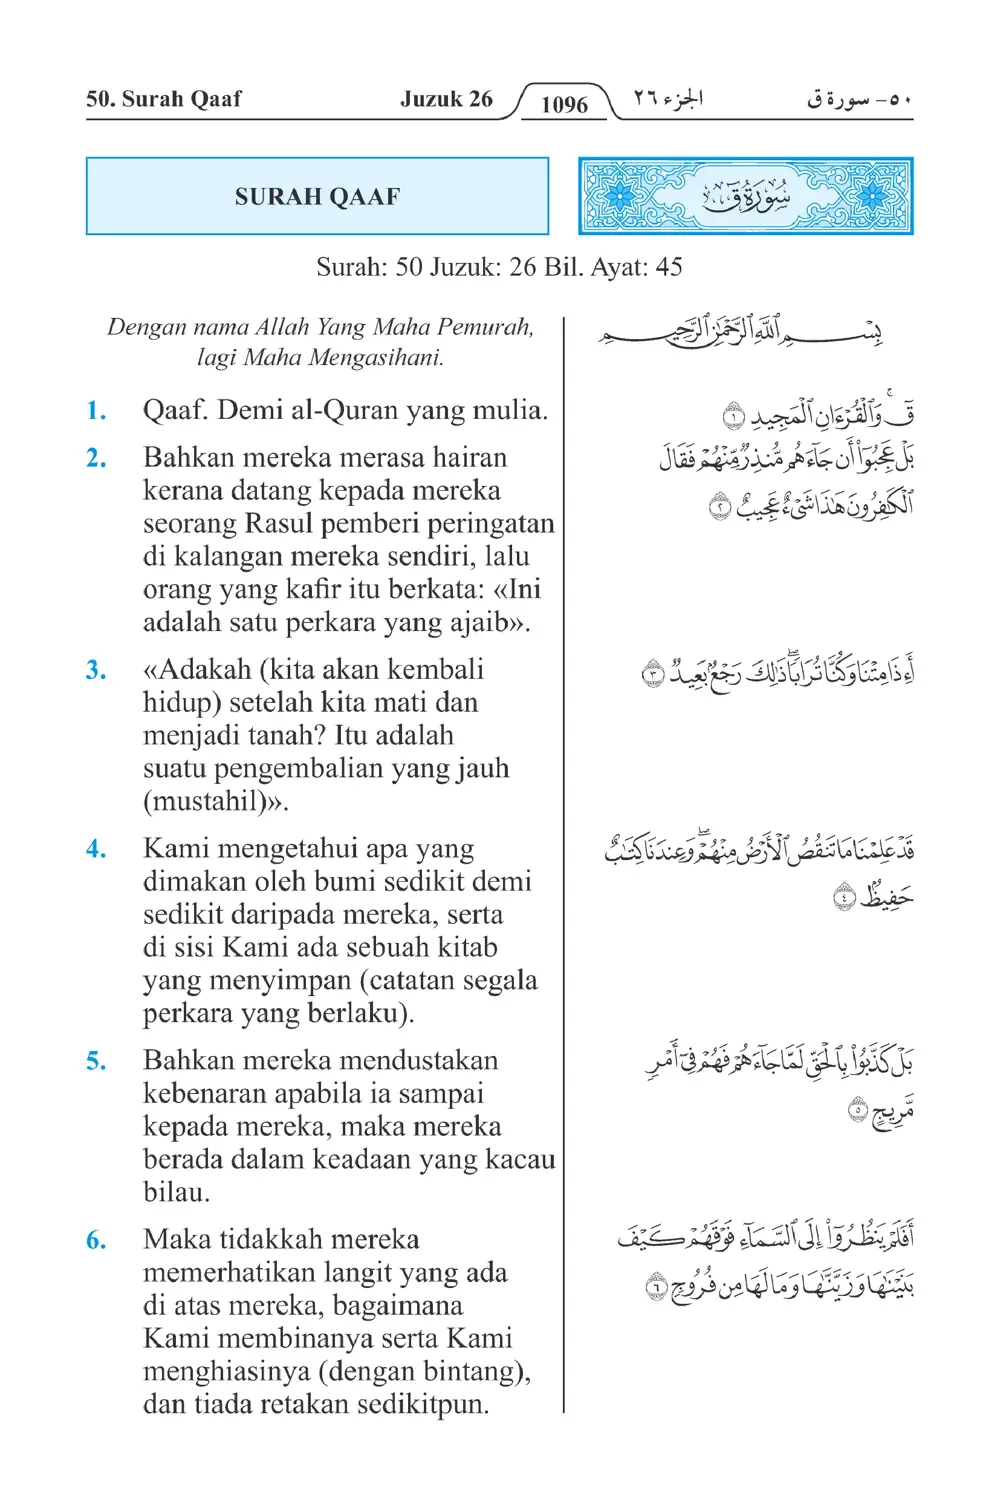 50. Surah Qaaf Juzuk 26 1096 الجزء ٢٦ ٥٠- سورة ق
SURAH QAAF
سُورَةُ قٓ
Surah: 50 Juzuk: 26 Bil. Ayat: 45
Dengan nama Allah Yang Maha Pemurah,
lagi Maha Mengasihani.
بِسْمِ ٱللَّهِ ٱلرَّحْمَٰنِ ٱلرَّحِيمِ
1. Qaaf. Demi al-Quran yang mulia.
قٓ ۚ وَٱلْقُرْءَانِ ٱلْمَجِيدِ ١
2. Bahkan mereka merasa hairan
kerana datang kepada mereka
seorang Rasul pemberi peringatan
di kalangan mereka sendiri, lalu
orang yang kafir itu berkata: «Ini
adalah satu perkara yang ajaib».
بَلْ عَجِبُوٓا۟ أَن جَآءَهُم مُّنذِرٌ مِّنْهُمْ فَقَالَ
ٱلْكَٰفِرُونَ هَٰذَا شَىْءٌ عَجِيبٌ ٢
3. «Adakah (kita akan kembali
hidup) setelah kita mati dan
menjadi tanah? Itu adalah
suatu pengembalian yang jauh
(mustahil)».
أَءِذَا مِتْنَا وَكُنَّا تُرَابًا ۖ ذَٰلِكَ رَجْعٌۢ بَعِيدٌ ٣
4. Kami mengetahui apa yang
dimakan oleh bumi sedikit demi
sedikit daripada mereka, serta
di sisi Kami ada sebuah kitab
yang menyimpan (catatan segala
perkara yang berlaku).
قَدْ عَلِمْنَا مَا تَنقُصُ ٱلْأَرْضُ مِنْهُمْ ۖ وَعِندَنَا كِتَٰبٌ
حَفِيظٌۢ ٤
5. Bahkan mereka mendustakan
kebenaran apabila ia sampai
kepada mereka, maka mereka
berada dalam keadaan yang kacau
bilau.
بَلْ كَذَّبُوا۟ بِٱلْحَقِّ لَمَّا جَآءَهُمْ فَهُمْ فِىٓ أَمْرٍ
مَّرِيجٍ ٥
6. Maka tidakkah mereka
memerhatikan langit yang ada
di atas mereka, bagaimana
Kami membinanya serta Kami
menghiasinya (dengan bintang),
dan tiada retakan sedikitpun.
أَفَلَمْ يَنظُرُوٓا۟ إِلَى ٱلسَّمَآءِ فَوْقَهُمْ كَيْفَ
بَنَيْنَٰهَا وَزَيَّنَّٰهَا وَمَا لَهَا مِن فُرُوجٍ ٦